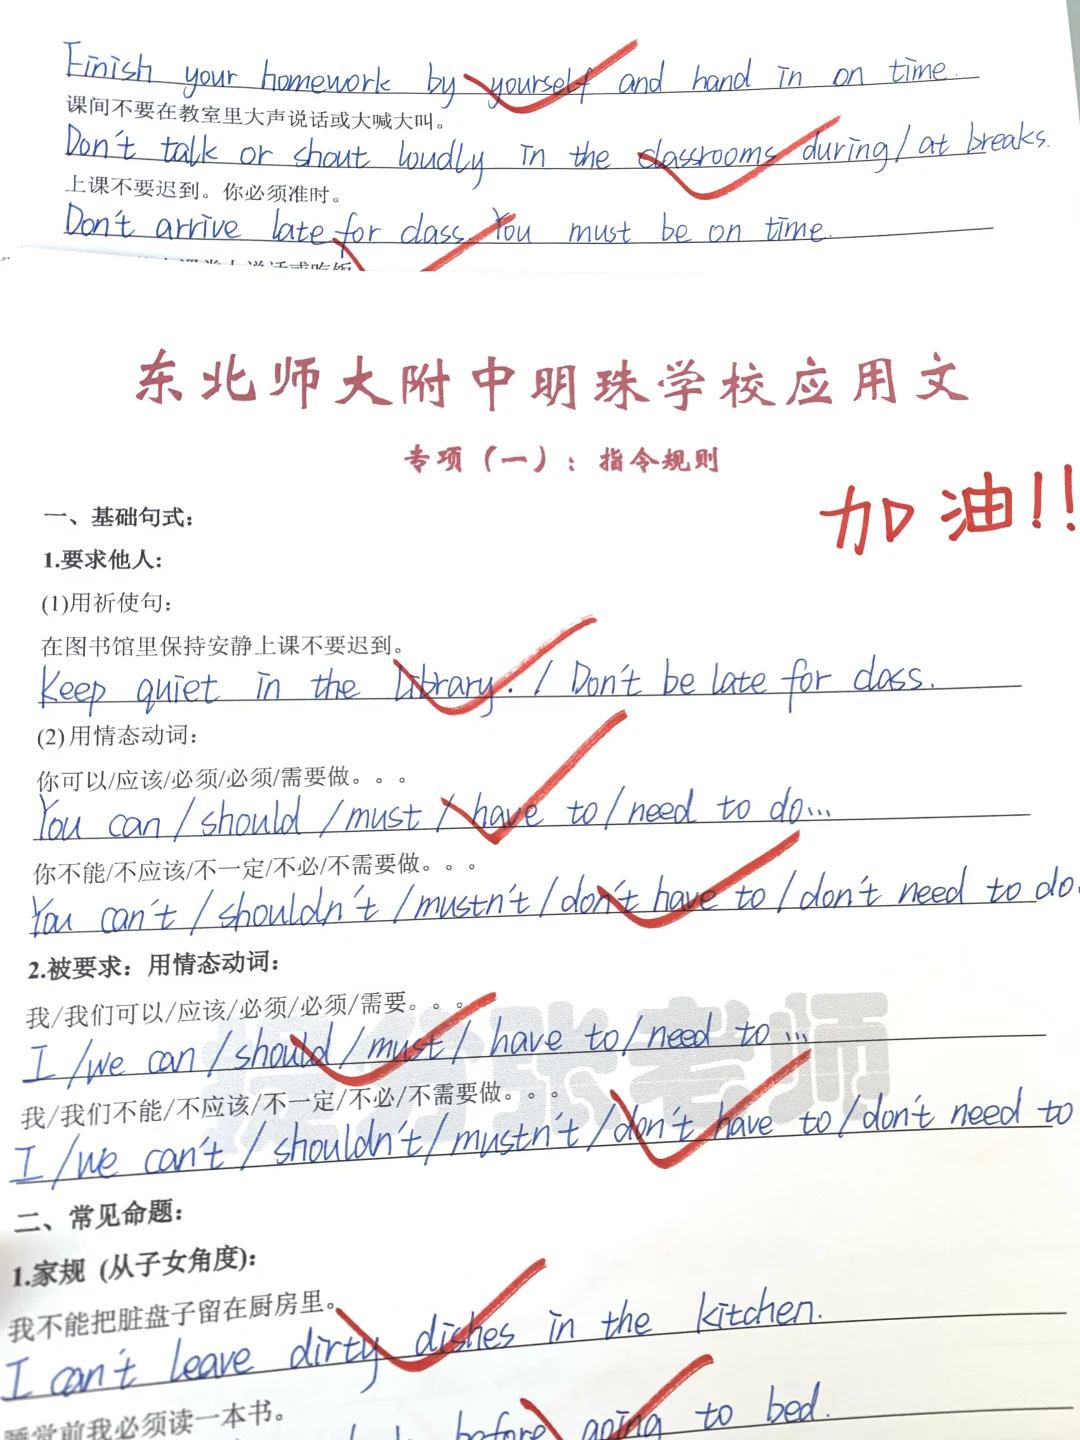 Finish your homework by yourself and hand in on time.
课间不要在教室里大声说话或大喊大叫。
Don't talk or shout loudly in the classrooms during/at breaks.
上课不要迟到。你必须准时。
Don't arrive late for class. You must be on time.
东北师大附中明珠学校应用文
专项(一):指令规则
加油!!
一、基础句式:
1.要求他人:
(1)用祈使句:
在图书馆里保持安静上课不要迟到。
Keep quiet in the library. / Don't be late for class.
(2)用情态动词:
你可以/应该/必须/必须/需要做。。。
You can / should / must / have to / need to do...
你不能/不应该/不一定/不必/不需要做。。。
You can't / shouldn't / mustn't / don't have to / don't need to do.
2.被要求:用情态动词:
我/我们可以/应该/必须/必须/需要。。。
I /we can / should / must / have to / need to ...
我/我们不能/不应该/不一定/不必/不需要做。。。
I /we can't / shouldn't / mustn't / don't have to / don't need to
提分张老师
二、常见命题:
1.家规 (从子女角度):
我不能把脏盘子留在厨房里。
I can't leave dirty dishes in the kitchen.
睡觉前我必须读一本书。
before going to bed.